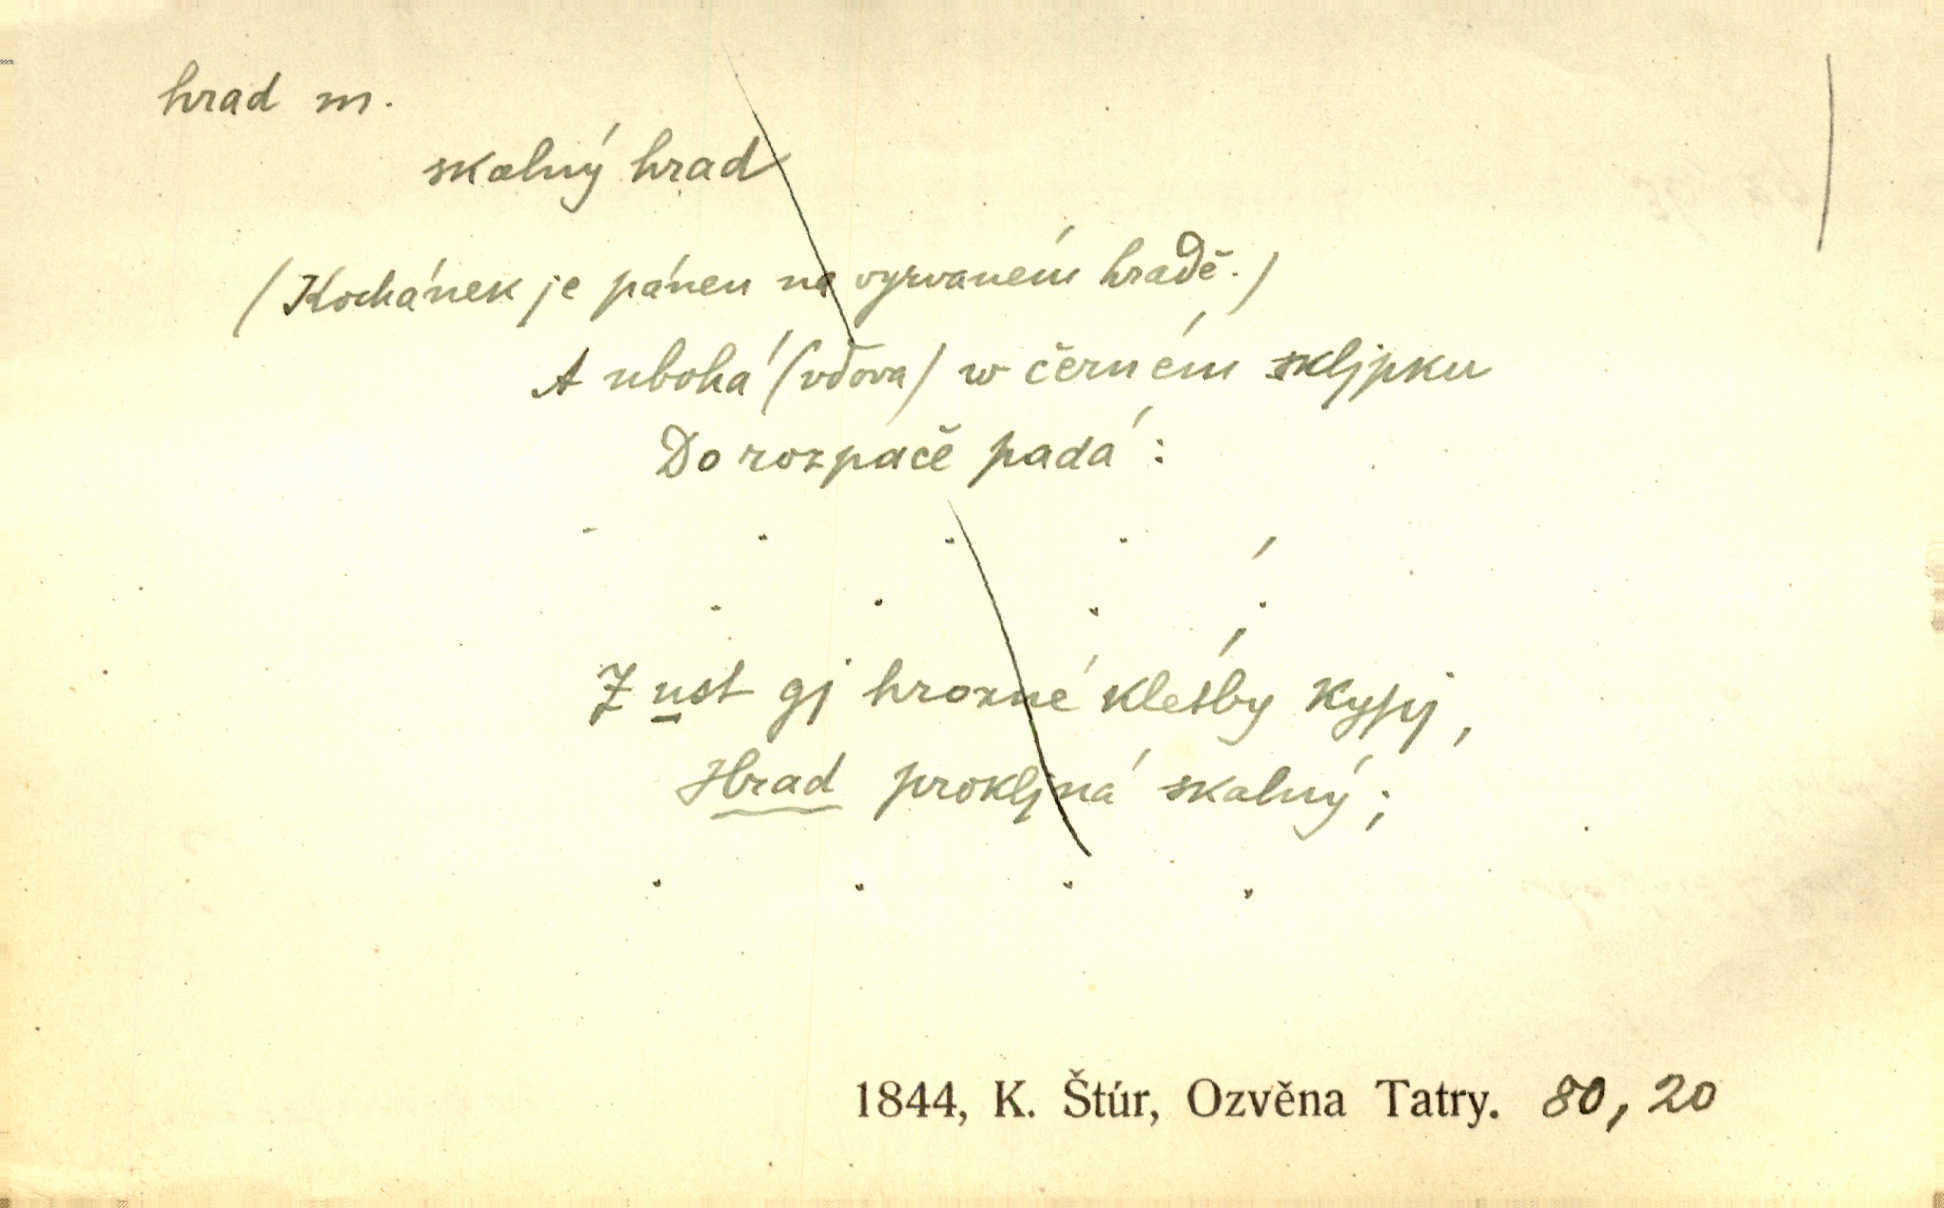 hrad m.
skalný hrad
(Kochánek je pánem na vyrvaném hradě.)
A ubohá (vdova) w černém skljpku
Do rozpače padá:
. . . . ,
. . . . ;
Z ust gj hrozné kletby kypj,
Hrad prokljná skalný;
. . . .
1844, K. Štúr, Ozvěna Tatry. 80, 20